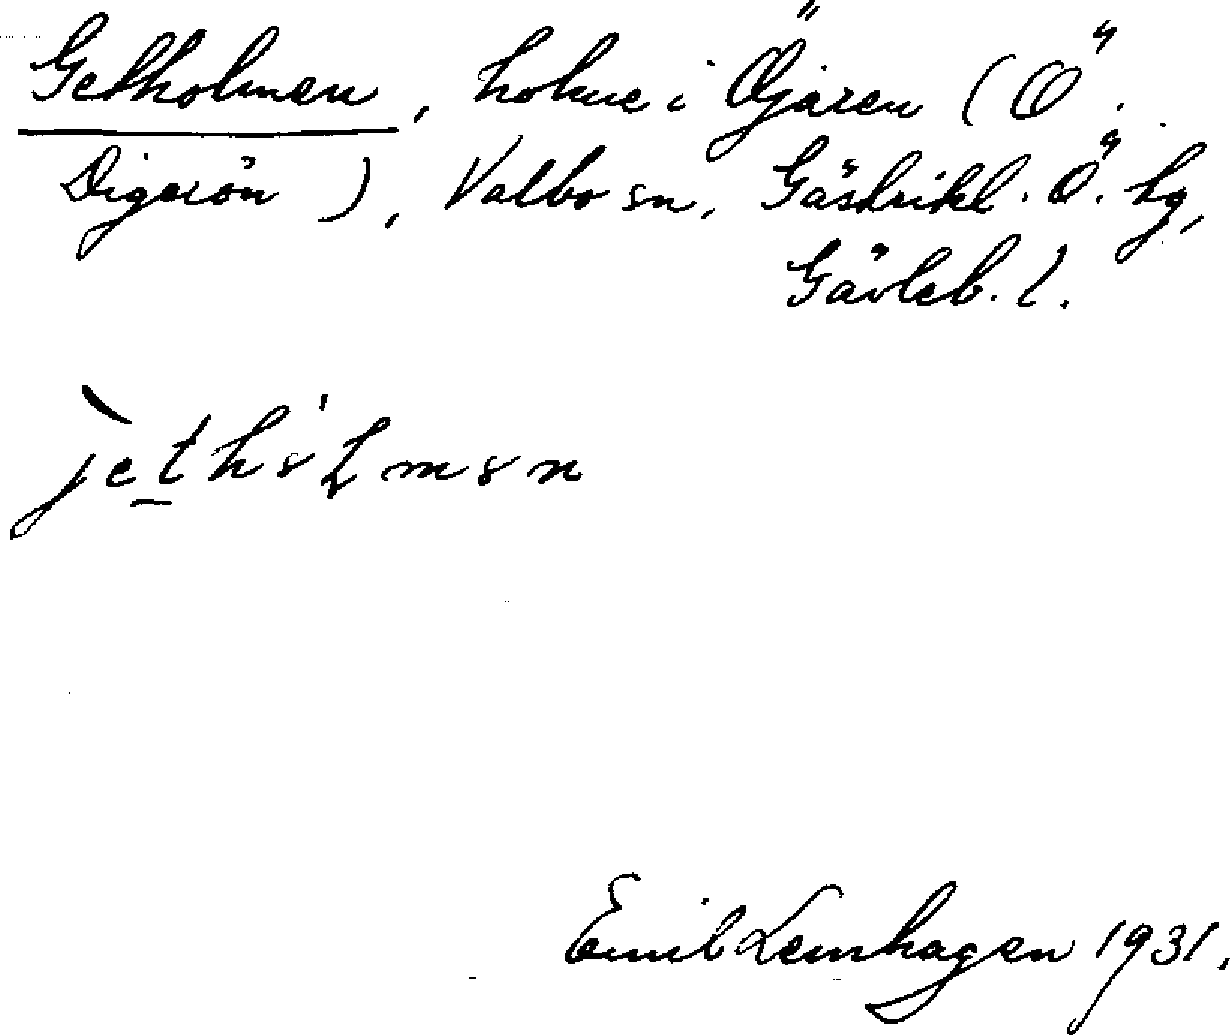 Getholmen, holme i Öjaren (Ö.
Digerön), Valbo sn, Gästrikl. Ö. hg,
Gävleb. l.
Emil Lenhagen 1931.